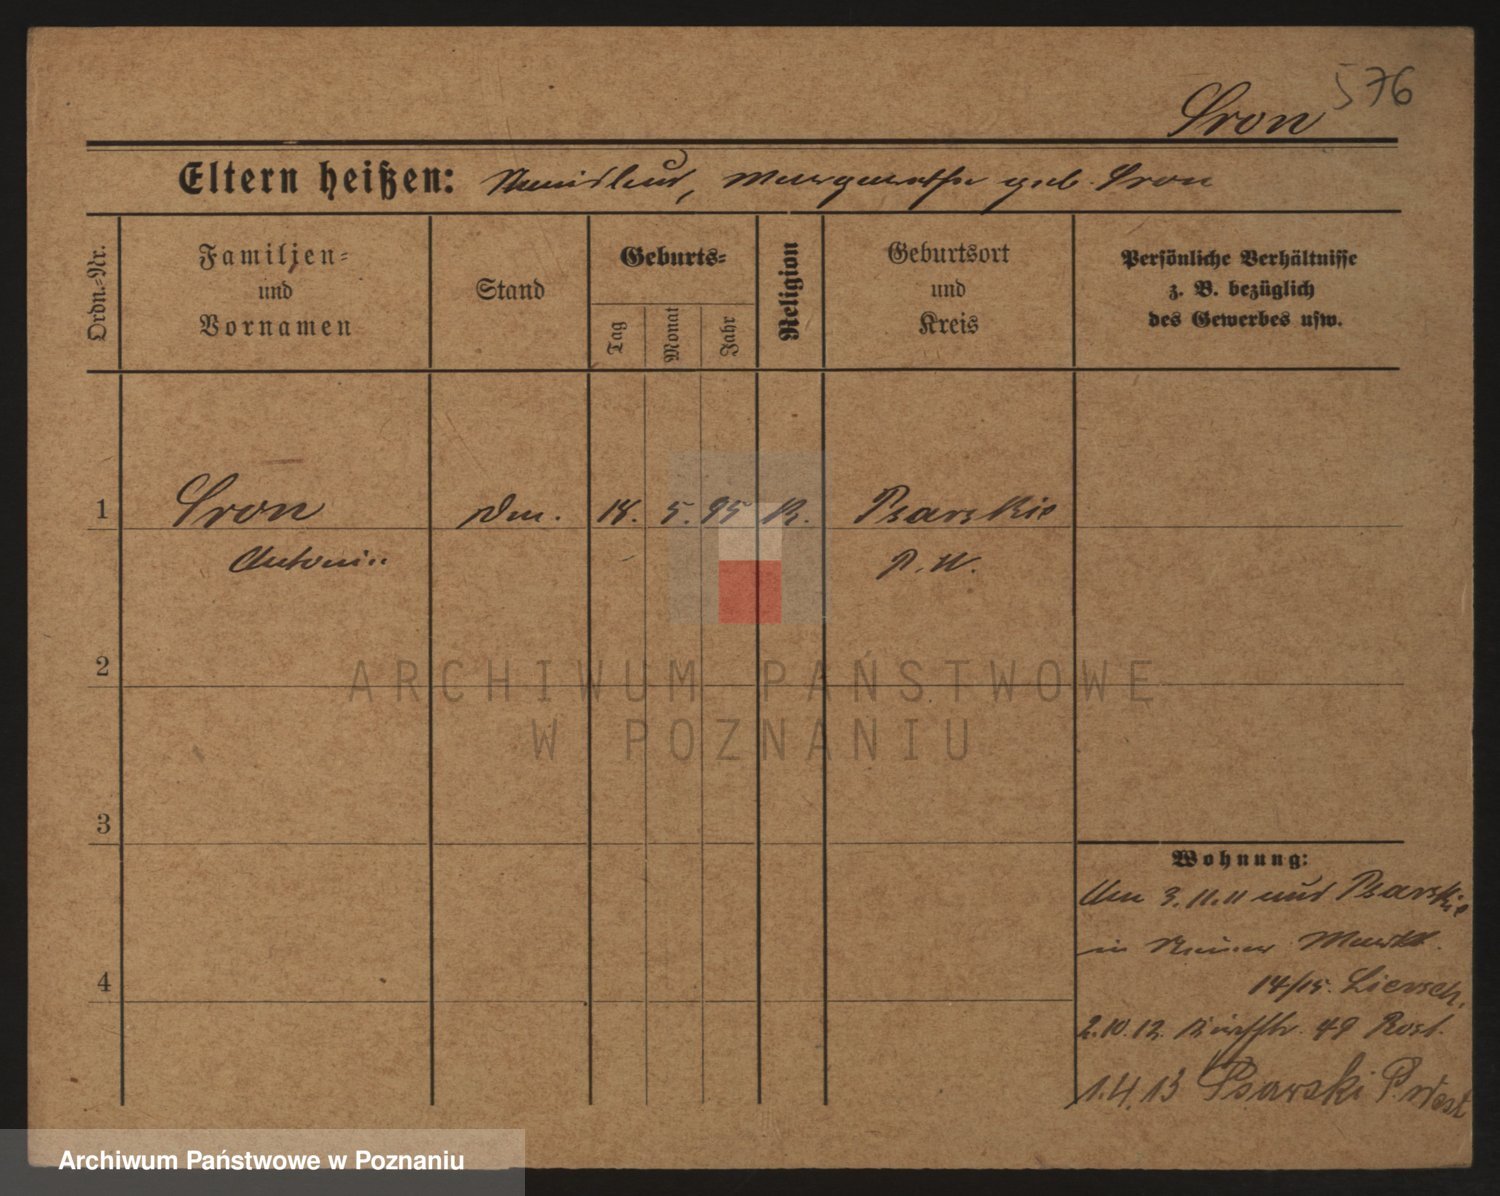 576
Sron
Eltern heißen: Stanislaus, Margarethe geb. Sron
Ordn.-Nr.
Familien-
und
Vornamen
Stand
Geburts-
Tag
Monat
Jahr
Religion
Geburtsort
und
Kreis
Persönliche Verhältnisse
z. B. bezüglich
des Gewerbes usw.
1
Sron
18. 5. 95 K.
Psarskie
Antonie
P. W.
2
ARCHIWUM PAŃSTWOWE
W POZNANIU
3
Wohnung:
3.11.11 aus Psarskie
in
4
14/15. Liersch.
2.10.12. 49 Rost.
1.4.13 Psarski P. West
Archiwum Państwowe w Poznaniu